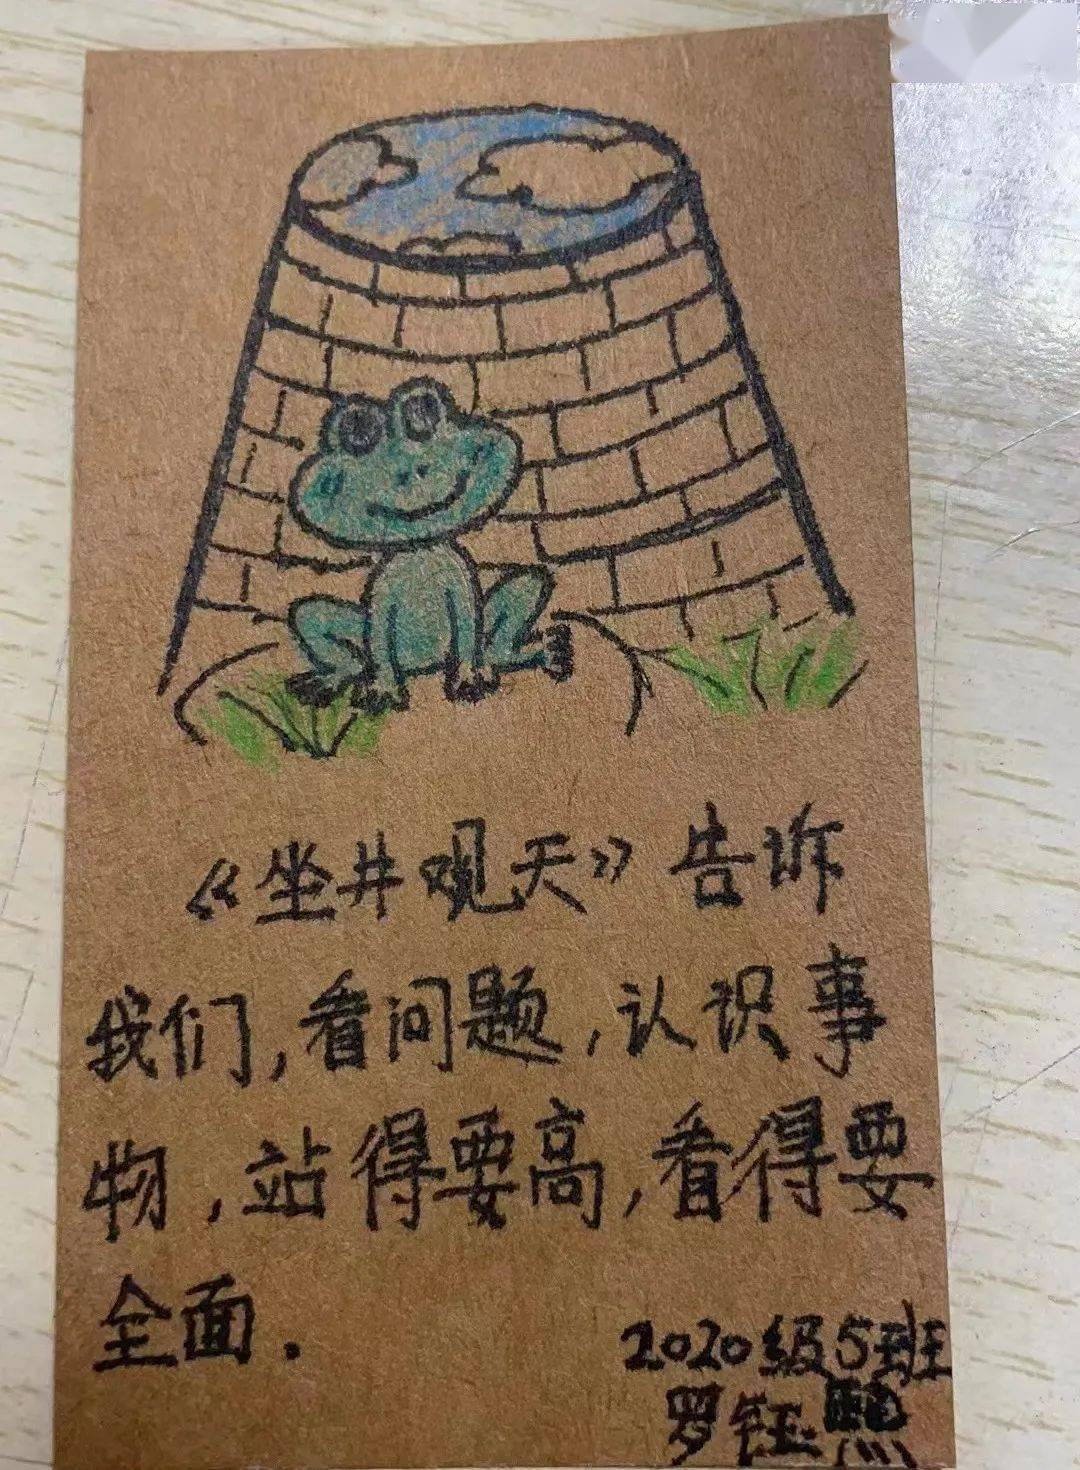 《坐井观天》告诉
我们,看问题,认识事
物,站得要高,看得要
全面.
2020级5班
罗钰熙